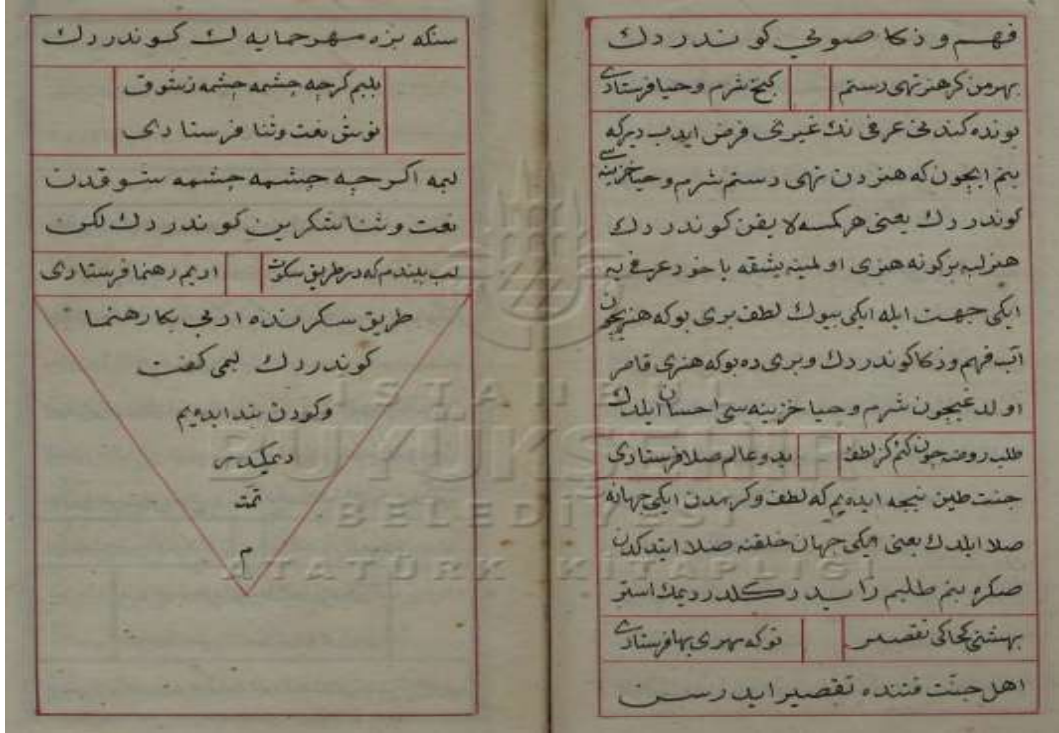 فهم و ذكا صويى كوندردك
بهرمن كز هنر تهى دستم كنج شرم و حيا فرستادى
بونده كندنى عرفى نك غيرى فرض ايدب ديركه
بنم ايچون كه هنردن تهى دستم شرم و حيا خزينه سى
كوندردك يعنى هركسه لايقن كوندردك
ايكى جهت ايله ايكى بيوك لطف برى بوكه هنر ايچون
آب فهم و ذكا كوندردك و برى ده بوكه هنرى قاصر
اولدغيچون شرم و حيا خزينه سى احسان ايلدك
طلب روضه چون كنم كز لطف بدو عالم صلا فرستادى
جنت طلبن نيجه ايده يم كه لطف و كرمدن ايكى جهانه
صلا ايلدك يعنى ايكى جهان خلقنه صلا ايتدكدن
صكره بنم طلبم زايددر كلدر ديمك استر
بهشتى كجا كى تقصير توكه مهرى بها فرستادى
اهل جنت فتنده تقصير ايدرسن
سنكه بزه مهر حمايه لك كوندردك
بلبم كرچه چشمه چشمه ز شوق
نوش نعت و ثنا فرستادى
لبمه اكرچه چشمه چشمه شوقدن
نعت و ثنا شكرين كوندردك لكن
لب ببندم كه در طريق سكوت ادبم رهنما فرستادى
طريق سكونده ادبى بكا رهنما
كوندردك لبمى كفت
وكودن بند ايده يم
ديمكدر
تمت
م
ISTANBUL
BÜYÜKŞEHİR
BELEDİYESİ
ATATÜRK KİTAPLIĞI